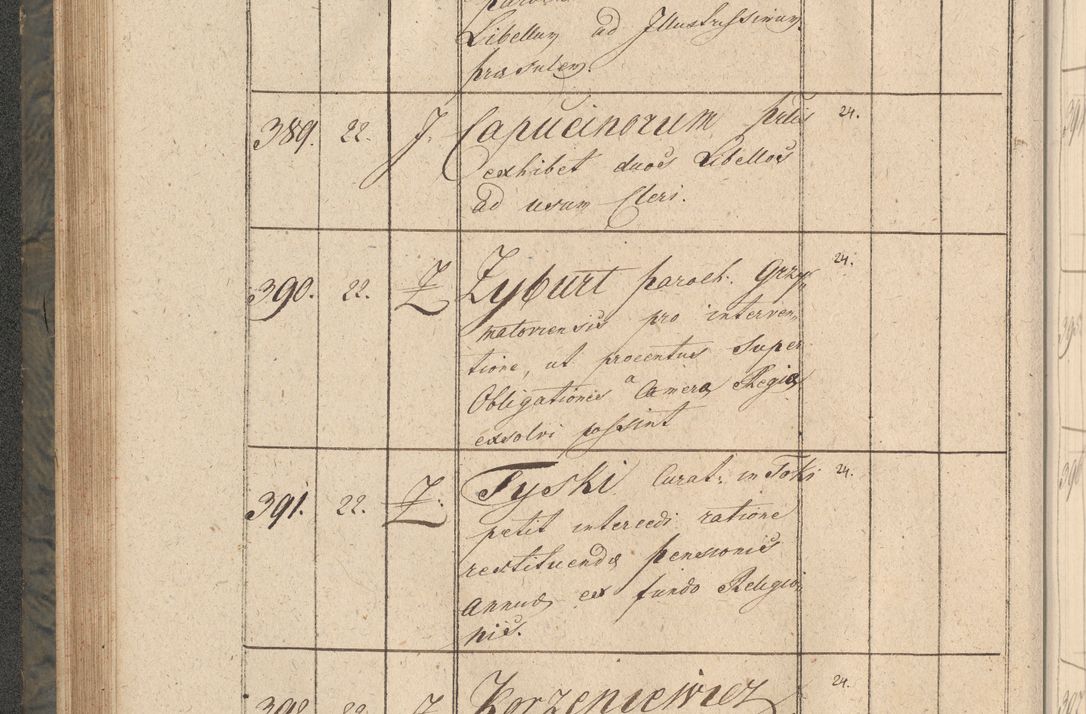 Libellum ad Illustrissimum
præsulem.
389. 22. J. Capucinorum 24.
exhibet duos Libellos
ad usum Cleri.
390. 22. Zyburt paroch. Grzy„ 24.
matoviensis pro interven„
tione, ut procentus super
Obligationes a Camera Regia
exsolvi possint
391. 22. Tyski Curat: in Toki 24.
petit intercedi ratione
restituendæ pensionis
annuæ ex fundo Religio„
nis.
392. 22. Korzeniewicz 24.